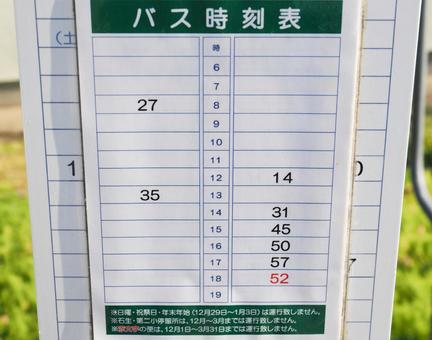 バス時刻表
(土
時
6
7
27 8
9
10
11
12 14
35 13
14 31
15 45
16 50
17 57
18 52
19
※日曜・祝祭日・年末年始(12月29日〜1月3日)は運行致しません。
※石生・第二小停留所は、12月〜3月までは運行致しません。
※赤文字の便は、12月1日〜3月31日までは運行致しません。